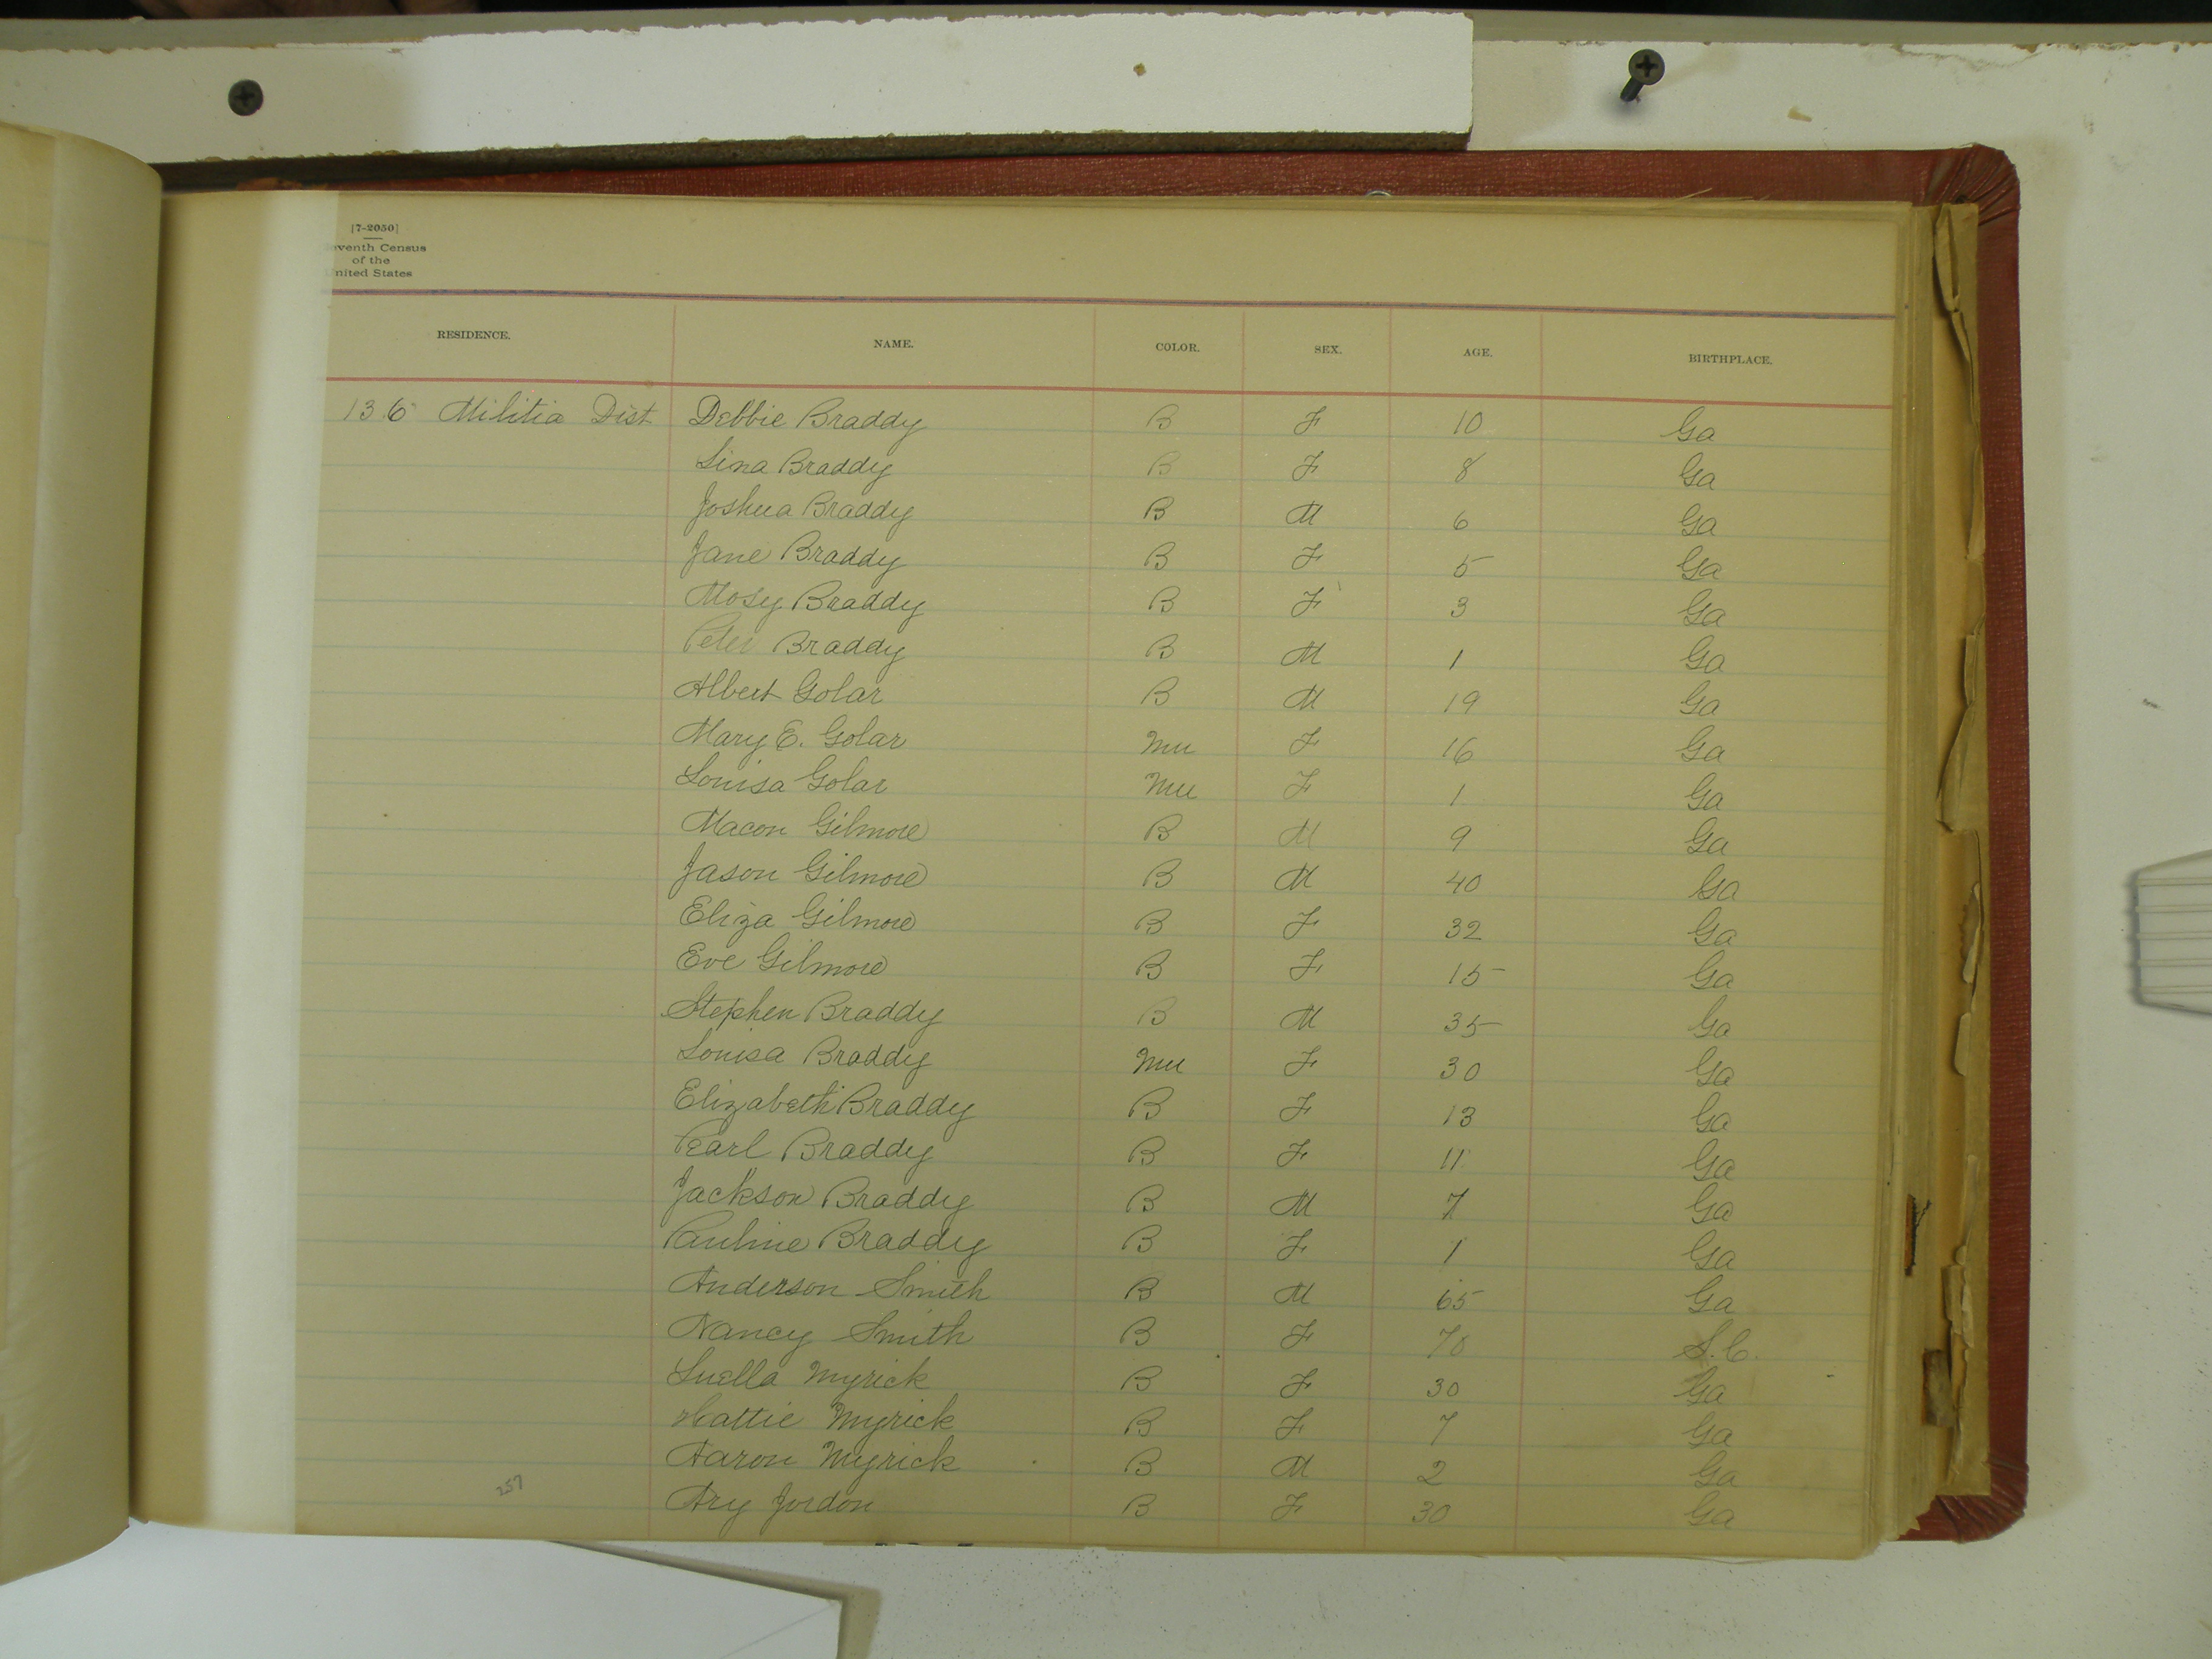 [7-2050]
eventh Census
of the
nited States
RESIDENCE. NAME. COLOR. SEX. AGE. BIRTHPLACE.
136 Militia Dist Debbie Braddy B F 10 Ga
Lina Braddy B F 8 Ga
Joshua Braddy B M 6 Ga
Jane Braddy B F 5 Ga
Mosey Braddy B F 3 Ga
Peter Braddy B M 1 Ga
Albert Golar B M 19 Ga
Mary E. Golar Mu F 16 Ga
Louisa Golar Mu F 1 Ga
Macon Gilmore B M 9 Ga
Jason Gilmore B M 40 Ga
Eliza Gilmore B F 32 Ga
Eve Gilmore B F 15 Ga
Stephen Braddy B M 35 Ga
Louisa Braddy Mu F 30 Ga
Elizabeth Braddy B F 13 Ga
Pearl Braddy B F 11 Ga
Jackson Braddy B M 7 Ga
Pauline Braddy B F 1 Ga
Anderson Smith B M 65 Ga
Nancy Smith B F 70 S.C.
Luella Myrick B F 30 Ga
Hattie Myrick B F 7 Ga
Aaron Myrick B M 2 Ga
257
Ary Jordon B F 30 Ga